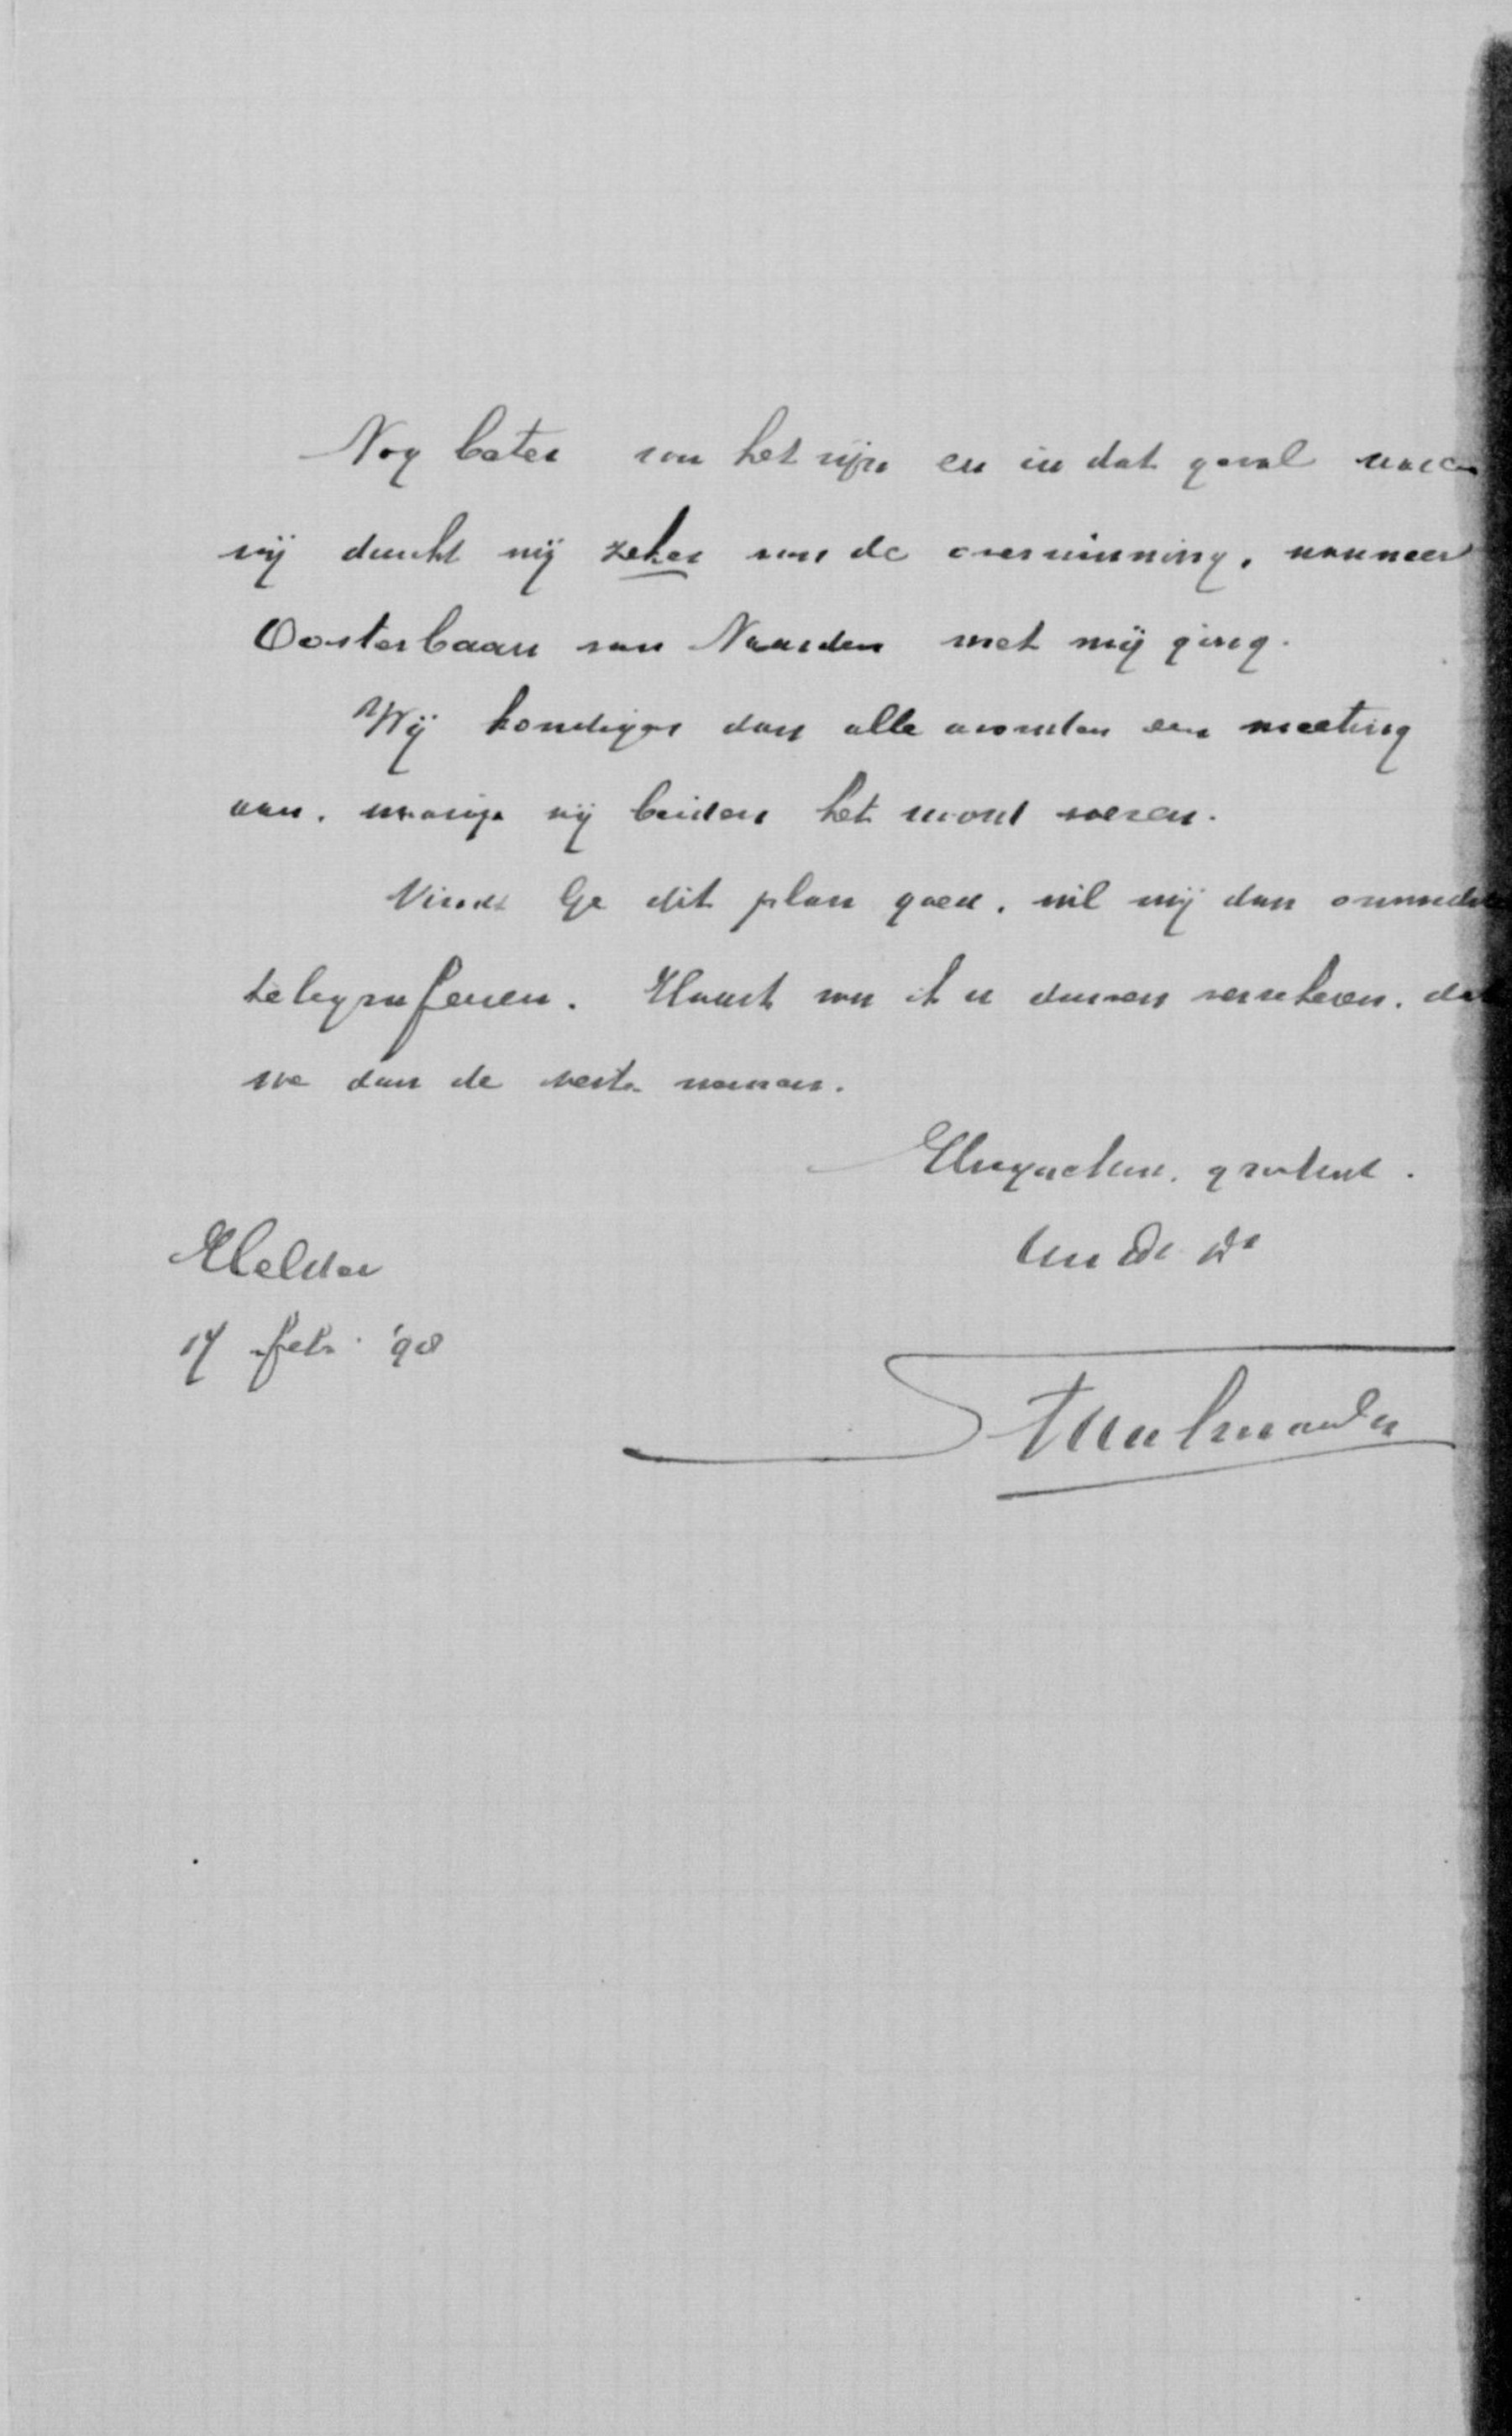 Nog beter zou het zijn en in dat geval waren
wij dunkt mij zeker van de overwinning, wanneer
Oosterbaan van Naarden met mij ging.
Wij kondigen dan alle avonden een meeting
aan, waarin wij beiden het woord voeren.
Vindt Ge dit plan goed, wil mij dan onmidd
telegrafeeren. Haast zou ik u durven verzekeren, dat
we dan de veste namen.
Hoogachtend, groetend.
Uw Dr
Helder
17 feb. '98